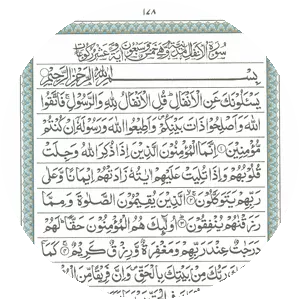 ١٧٨
سورة الانفال مدنية وهي خمس وسبعون آية وعشر ركوعات
بِسْمِ اللّٰهِ الرَّحْمٰنِ الرَّحِيْمِ
يَسْـَٔلُوْنَكَ عَنِ الْاَنْفَالِ ؕ قُلِ الْاَنْفَالُ لِلّٰهِ وَالرَّسُوْلِ ۚ فَاتَّقُوا
اللّٰهَ وَاَصْلِحُوْا ذَاتَ بَيْنِكُمْ ۪ وَاَطِيْعُوا اللّٰهَ وَرَسُوْلَهٗۤ اِنْ كُنْتُمْ
مُّؤْمِنِيْنَ ۝١ اِنَّمَا الْمُؤْمِنُوْنَ الَّذِيْنَ اِذَا ذُكِرَ اللّٰهُ وَجِلَتْ
قُلُوْبُهُمْ وَاِذَا تُلِيَتْ عَلَيْهِمْ اٰيٰتُهٗ زَادَتْهُمْ اِيْمَانًا وَّعَلٰى
رَبِّهِمْ يَتَوَكَّلُوْنَ ۝٢ الَّذِيْنَ يُقِيْمُوْنَ الصَّلٰوةَ وَمِمَّا
رَزَقْنٰهُمْ يُنْفِقُوْنَ ۝٣ اُولٰٓئِكَ هُمُ الْمُؤْمِنُوْنَ حَقًّا ؕ لَهُمْ
دَرَجٰتٌ عِنْدَ رَبِّهِمْ وَمَغْفِرَةٌ وَّرِزْقٌ كَرِيْمٌ ۝٤ كَمَاۤ
رَبُّكَ مِنْۢ بَيْتِكَ بِالْحَقِّ ۪ وَاِنَّ فَرِيْقًا مِّنَ الْمُ